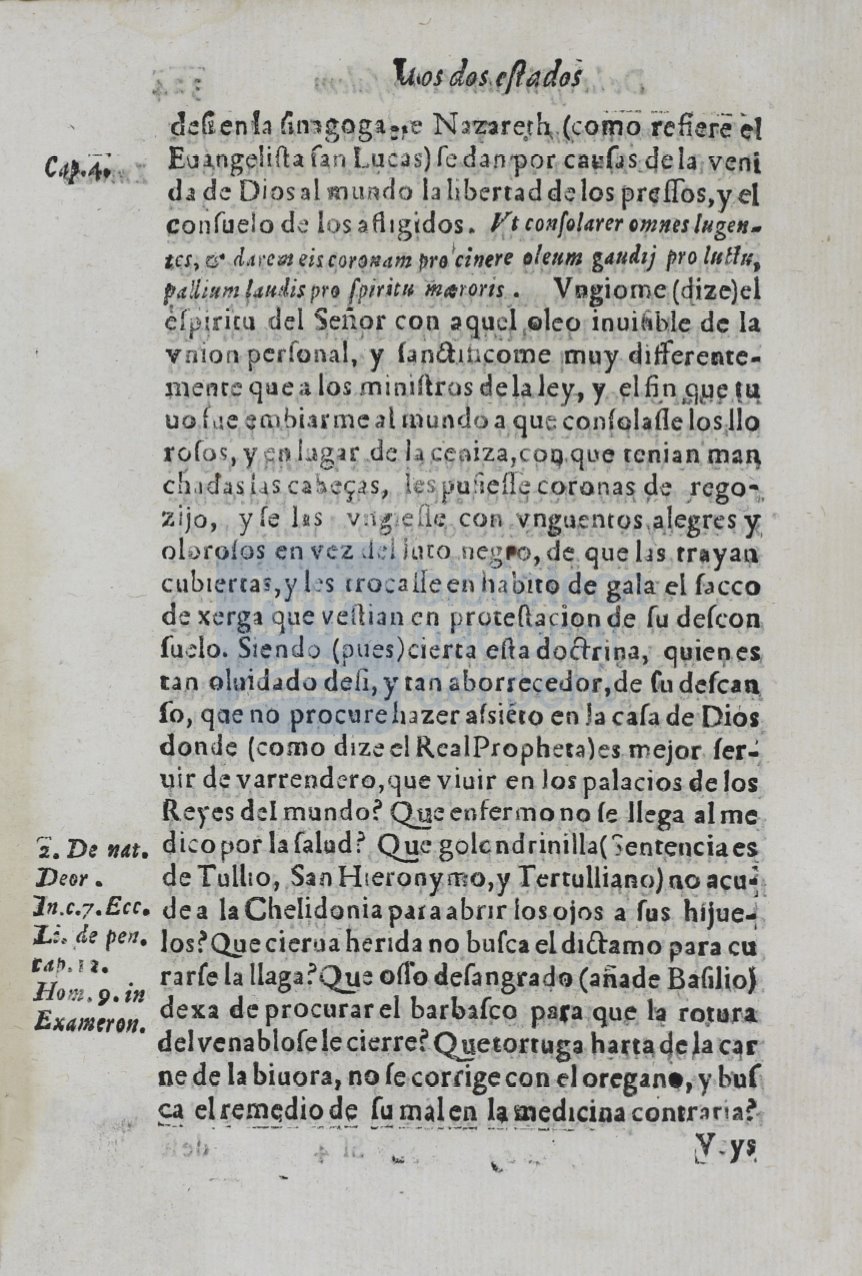 Los dos estados
de si en la sinagoga de Nazareth (como refiere el
Cap. 4.
Euangelista san Lucas) se dan por causas de la veni
da de Dios al mundo la libertad de los pressos, y el
consuelo de los afligidos. Vt consolarer omnes lugen-
tes, & darem eis coronam pro cinere oleum gaudij pro luctu,
pallium laudis pro spiritu mæroris. Vngiome (dize) el
espiritu del Señor con aquel oleo inuisible de la
vnion personal, y sanctificome muy differente-
mente que a los ministros de la ley, y el fin que tu
uo fue embiarme al mundo a que consolasse los llo
rosos, y en lugar de la ceniza, con que tenian man
chadas las cabeças, les pusiesse coronas de rego-
zijo, y se las vngiesse con vnguentos alegres y
olorosos en vez del luto negro, de que las trayan
cubiertas, y les trocasse en habito de gala el sacco
de xerga que vestian en protestacion de su descon
suelo. Siendo (pues) cierta esta doctrina, quien es
tan oluidado de si, y tan aborrecedor, de su descan
so, que no procure hazer assiẽto en la casa de Dios
donde (como dize el Real Propheta) es mejor ser-
uir de varrendero, que viuir en los palacios de los
Reyes del mundo? Que enfermo no se llega al me
2. De nat.
dico por la salud? Que golondrinilla (Sentencia es
Deor.
de Tullio, San Hieronymo, y Tertulliano) no acu-
In. c. 7. Ecc.
de a la Chelidonia para abrir los ojos a sus hijue-
Li. de pen.
los? Que cierua herida no busca el dictamo para cu
cap. 12.
rarse la llaga? Que osso desangrado (añade Basilio)
Hom. 9. in
dexa de procurar el barbasco para que la rotura
Exameron.
del venablo se le cierre? Que tortuga harta de la car
ne de la biuora, no se corrige con el oregano, y bus
ca el remedio de su mal en la medicina contraria?
Y ys